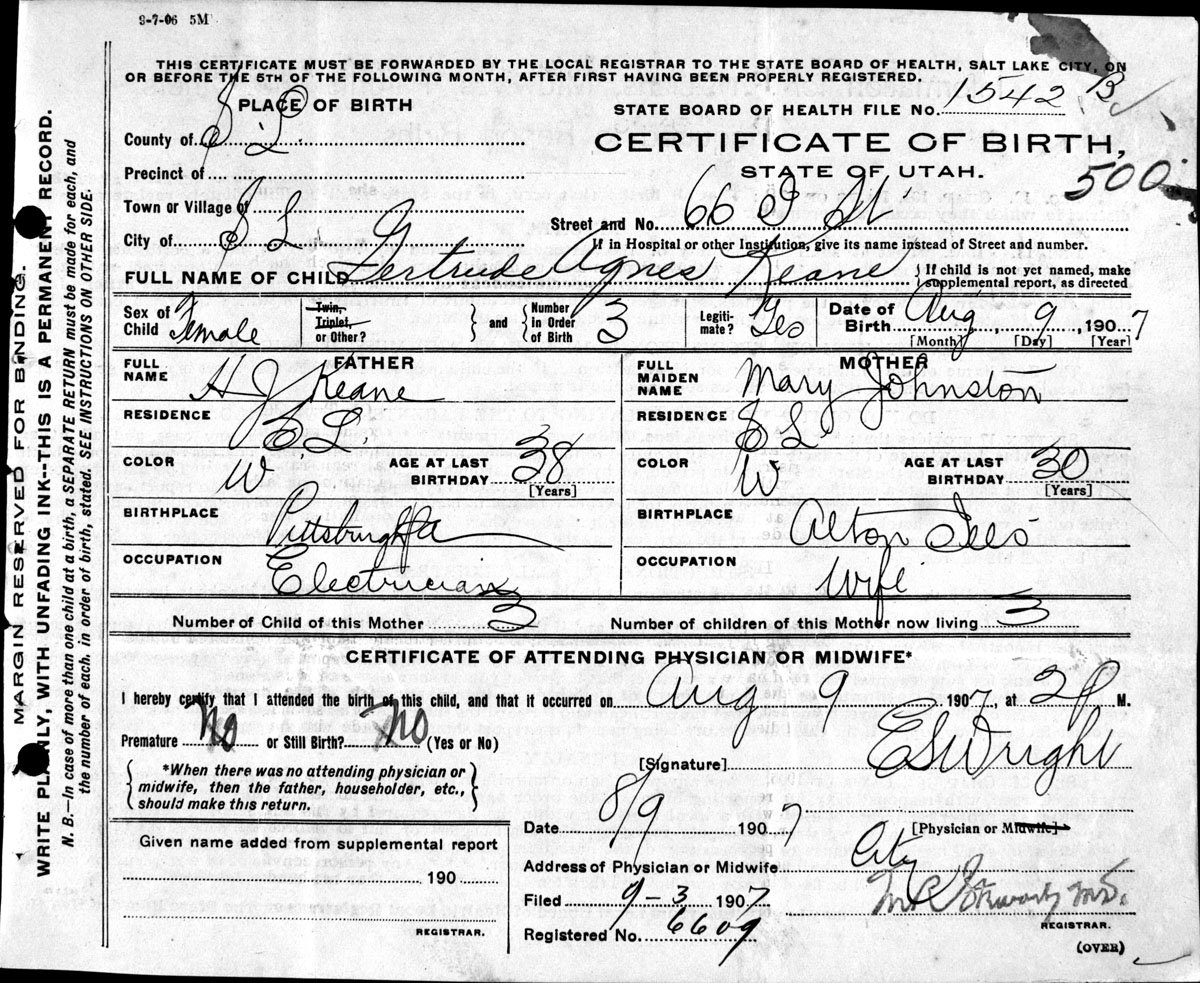 9-7-06 5M
THIS CERTIFICATE MUST BE FORWARDED BY THE LOCAL REGISTRAR TO THE STATE BOARD OF HEALTH, SALT LAKE CITY, ON
OR BEFORE THE 5TH OF THE FOLLOWING MONTH, AFTER FIRST HAVING BEEN PROPERLY REGISTERED.
PLACE OF BIRTH
STATE BOARD OF HEALTH FILE No. 1542 B
County of S. L.
CERTIFICATE OF BIRTH,
STATE OF UTAH.
500
Precinct of
Town or Village of
Street and No. 66 St
City of S L
If in Hospital or other Institution, give its name instead of Street and number.
FULL NAME OF CHILD Gertrude Agnes Keane
If child is not yet named, make supplemental report, as directed
Sex of Child Female
Twin, Triplet, or Other? and Number in Order of Birth 3
Legitimate? Yes
Date of Birth Aug, 9, 1907
[Month] [Day] [Year]
FATHER
FULL NAME H J Keane
MOTHER
FULL MAIDEN NAME Mary Johnston
RESIDENCE S L.
RESIDENCE S L.
COLOR W AGE AT LAST BIRTHDAY 38 [Years]
COLOR W AGE AT LAST BIRTHDAY 30 [Years]
BIRTHPLACE Pittsburgh Pa
BIRTHPLACE Alton Ills
OCCUPATION Electrician
OCCUPATION Wife
Number of Child of this Mother 3
Number of children of this Mother now living 3
CERTIFICATE OF ATTENDING PHYSICIAN OR MIDWIFE*
I hereby certify that I attended the birth of this child, and that it occurred on Aug 9 1907, at 2 P M.
Premature No or Still Birth? No (Yes or No)
*When there was no attending physician or midwife, then the father, householder, etc., should make this return.
[Signature] E S Wright
Date 8/9 1907
[Physician or Midwife]
Given name added from supplemental report
190
REGISTRAR.
Address of Physician or Midwife City
Filed 9-3 1907
M.D.
REGISTRAR.
Registered No. 6609
(OVER)
MARGIN RESERVED FOR BINDING.
WRITE PLAINLY, WITH UNFADING INK--THIS IS A PERMANENT RECORD.
N. B.—In case of more than one child at a birth, a SEPARATE RETURN must be made for each, and
the number of each, in order of birth, stated. SEE INSTRUCTIONS ON OTHER SIDE.